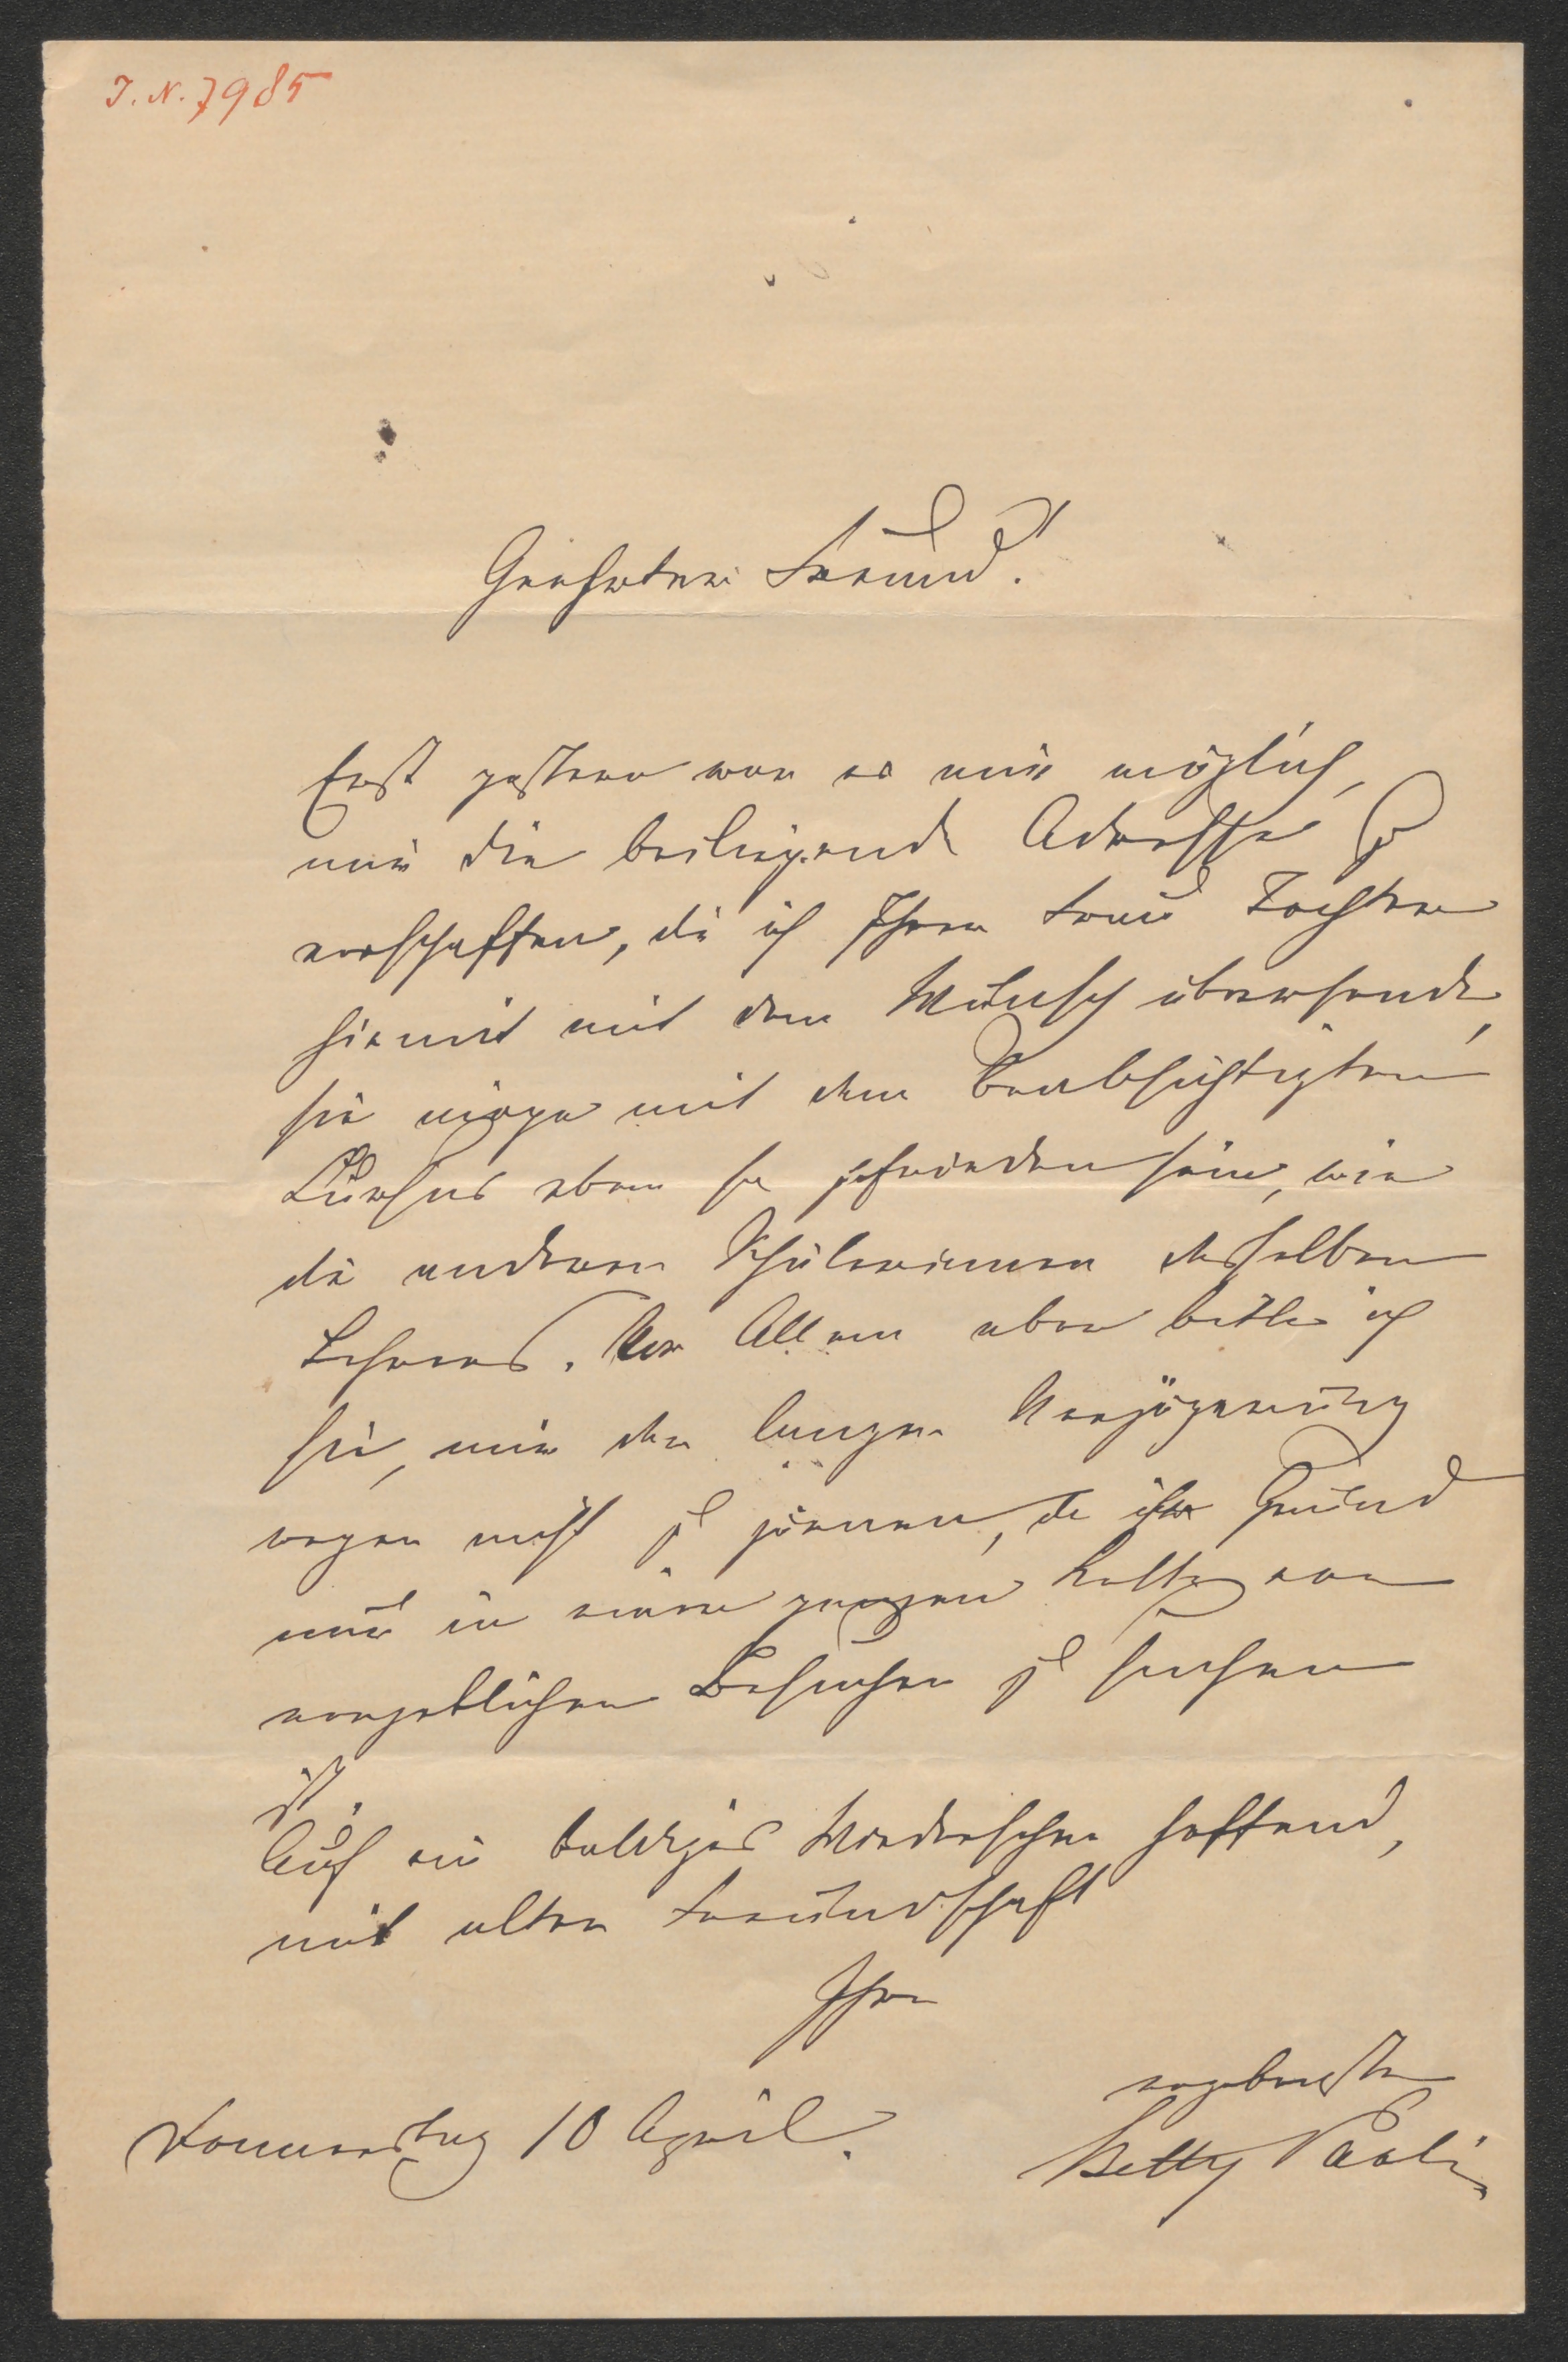 I. N. 7985
Geehrter Freund!
Erst gestern war es mir möglich,
mir die beiliegende Adresse zu
verschaffen, die ich Ihrer Frau Tochter
hiemit mit dem Wunsch übersende,
sie möge mit dem beabsichtigten
Cursus eben so zufrieden sein, wie
die anderen Schülerinnen desselben
Lehrers. Vor Allem aber bitte ich
Sie, mir der langen Verzögerung
wegen nicht zu zürnen, da ihr Grund
nur in einer ganzen Kette von
vergeblichen Besuchen zu suchen
ist.
Auf ein baldiges Wiedersehen hoffend,
mit alter Freundschaft
Ihre
ergebenste
Donnerstag 10 April.
Betty Paoli